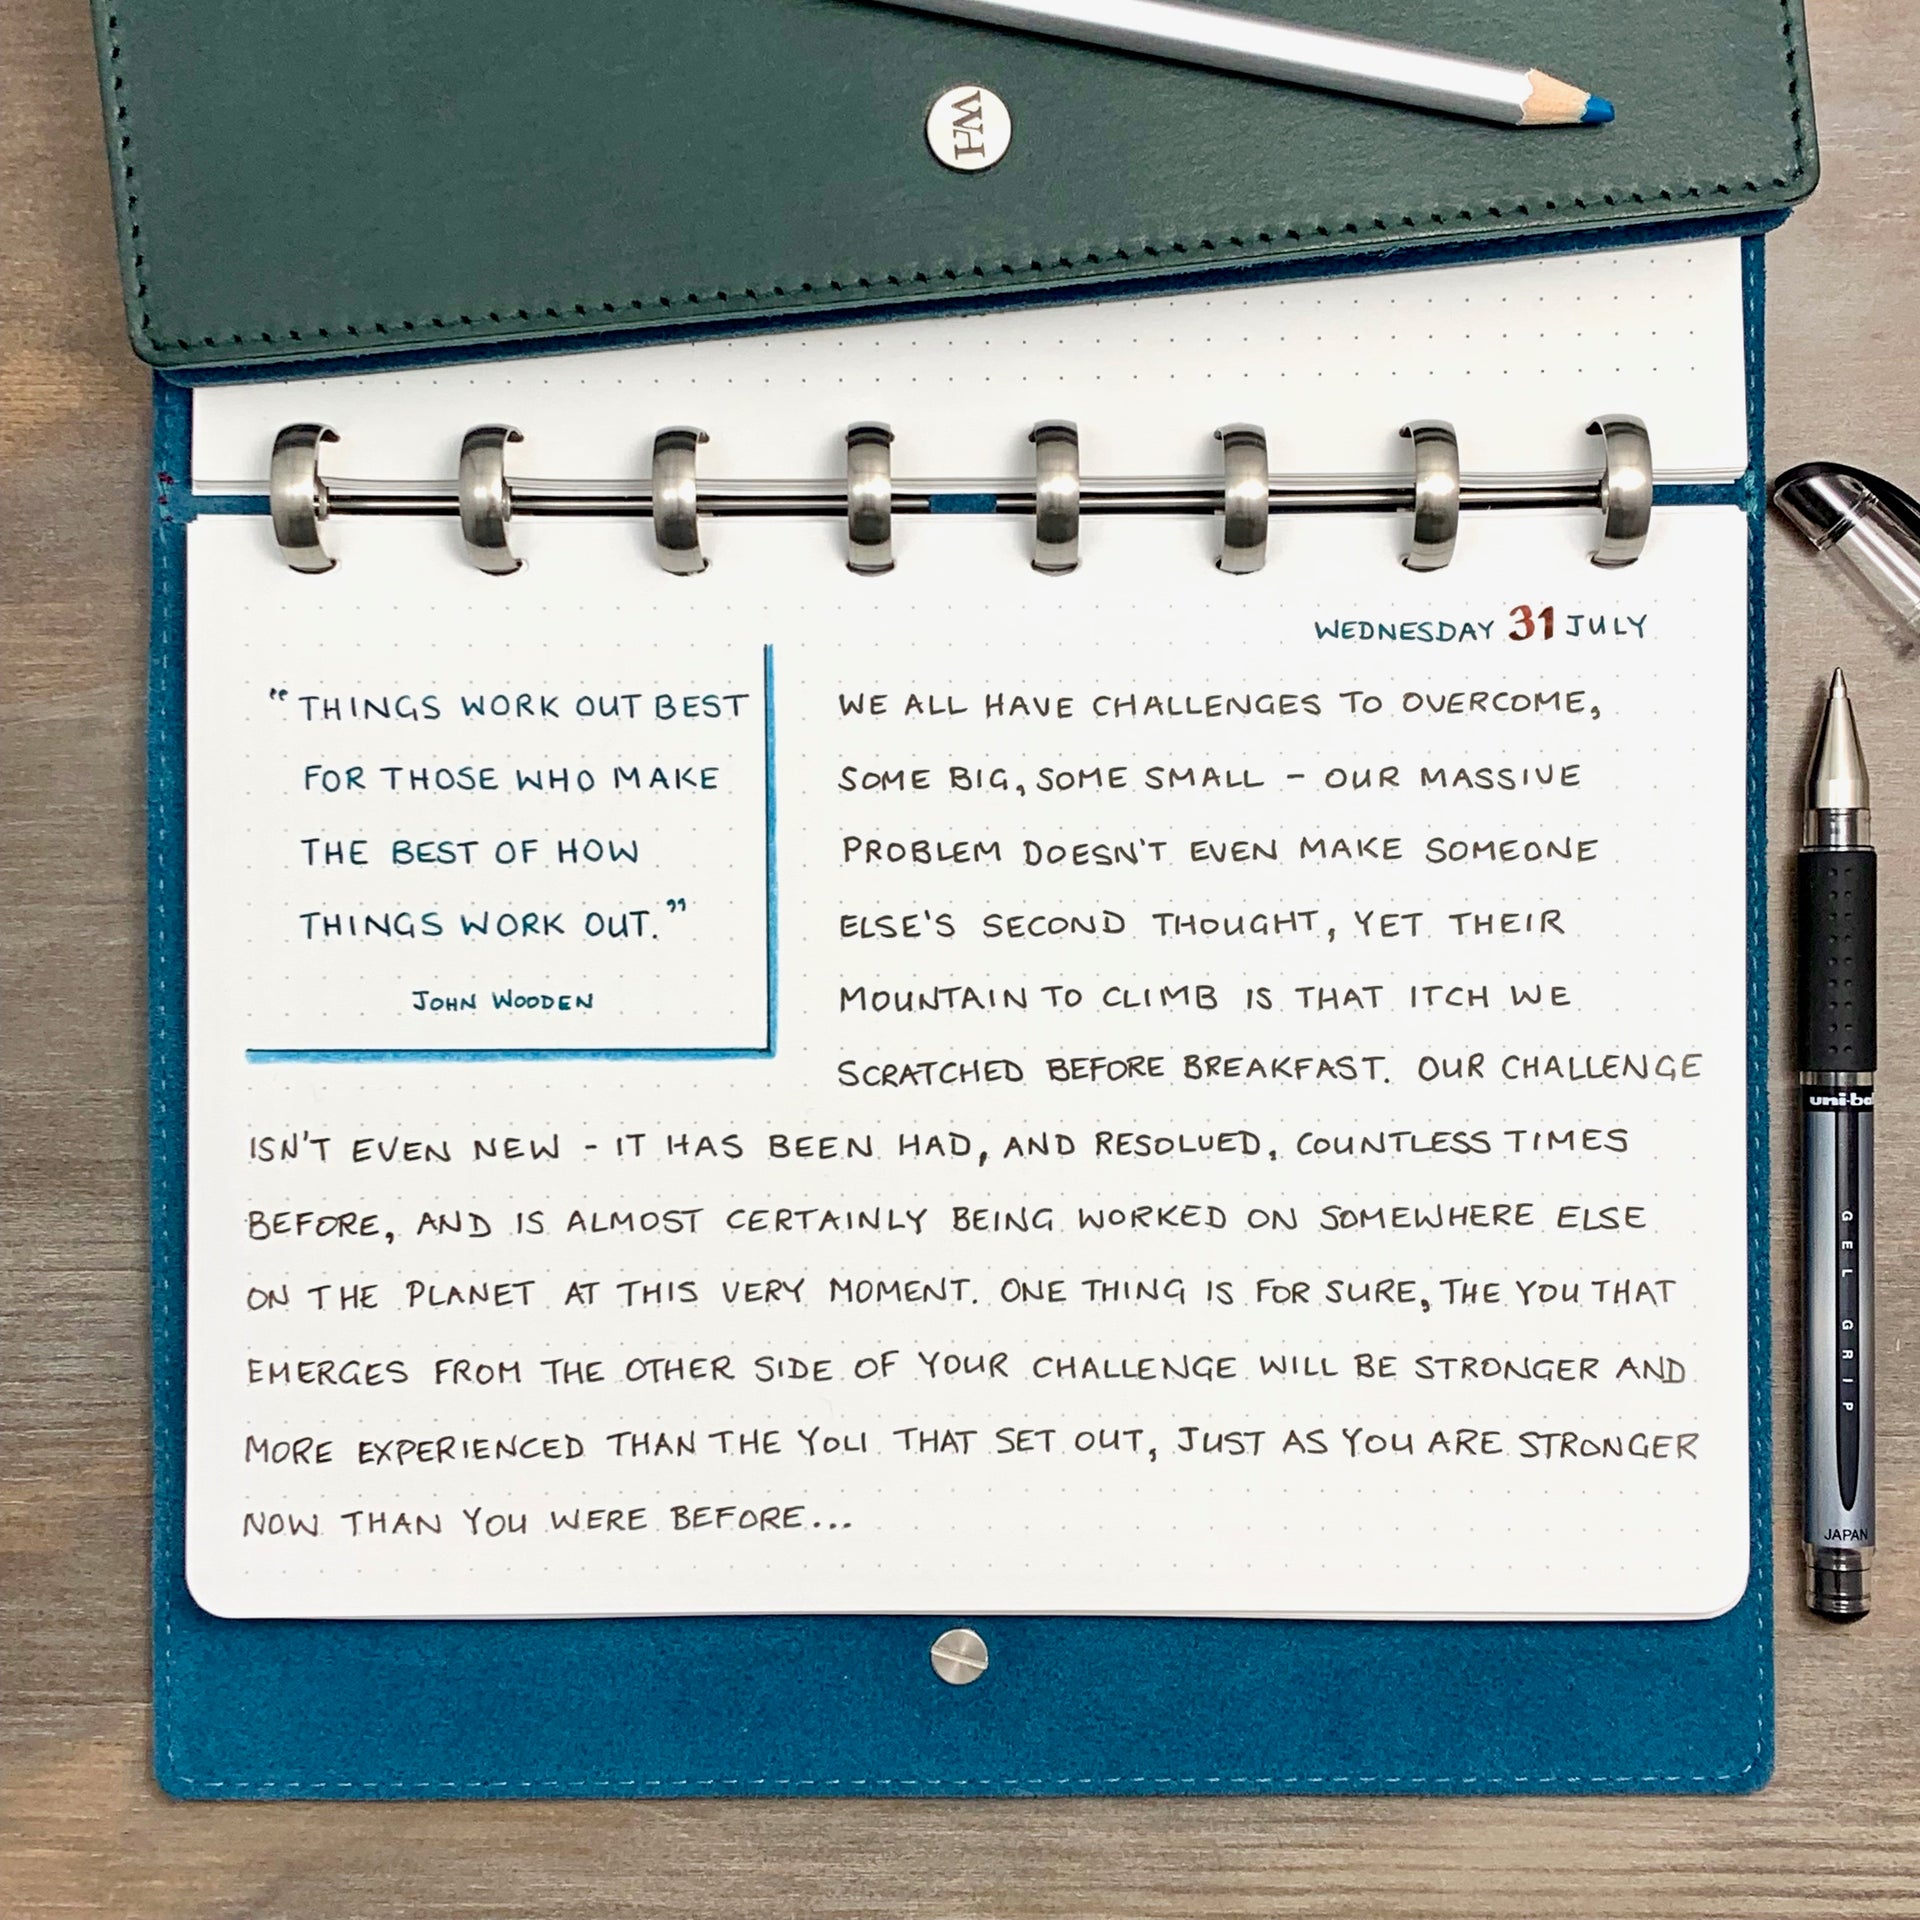 WH
WEDNESDAY 31 JULY
“THINGS WORK OUT BEST
FOR THOSE WHO MAKE
THE BEST OF HOW
THINGS WORK OUT.”
JOHN WOODEN
WE ALL HAVE CHALLENGES TO OVERCOME,
SOME BIG, SOME SMALL – OUR MASSIVE
PROBLEM DOESN'T EVEN MAKE SOMEONE
ELSE'S SECOND THOUGHT, YET THEIR
MOUNTAIN TO CLIMB IS THAT ITCH WE
SCRATCHED BEFORE BREAKFAST. OUR CHALLENGE
ISN'T EVEN NEW – IT HAS BEEN HAD, AND RESOLVED, COUNTLESS TIMES
BEFORE, AND IS ALMOST CERTAINLY BEING WORKED ON SOMEWHERE ELSE
ON THE PLANET AT THIS VERY MOMENT. ONE THING IS FOR SURE, THE YOU THAT
EMERGES FROM THE OTHER SIDE OF YOUR CHALLENGE WILL BE STRONGER AND
MORE EXPERIENCED THAN THE YOU THAT SET OUT, JUST AS YOU ARE STRONGER
NOW THAN YOU WERE BEFORE...
uni-ba
GEL GRIP
JAPAN